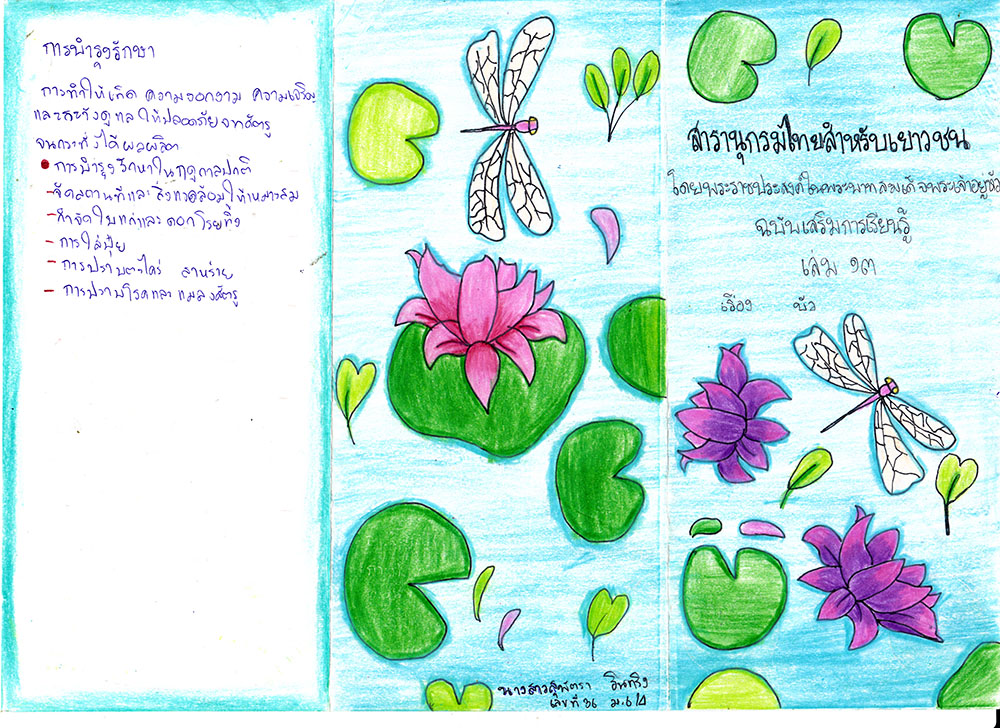 การบำรุงรักษา
การทำให้เกิด ความงอกงาม ความเจริญ
และระวังดูแลให้ปลอดภัยจากศัตรู
จนกระทั่งได้ผลผลิต
การบำรุงรักษาในฤดูกาลปกติ
-จัดสถานที่และสิ่งแวดล้อมให้เหมาะสม
-กำจัดใบแก่และดอกโรยทิ้ง
- การใส่ปุ๋ย
- การปราบตะไคร่ สาหร่าย
- การปราบโรคและแมลงศัตรู
นางสาวสุพัตรา อินทริง
เลขที่ 36 ม.6/4
สารานุกรมไทยสำหรับเยาวชน
โดยพระราชประสงค์ในพระบาทสมเด็จพระเจ้าอยู่หัว
ฉบับเสริมการเรียนรู้
เล่ม ๑๓
เรื่อง บัว